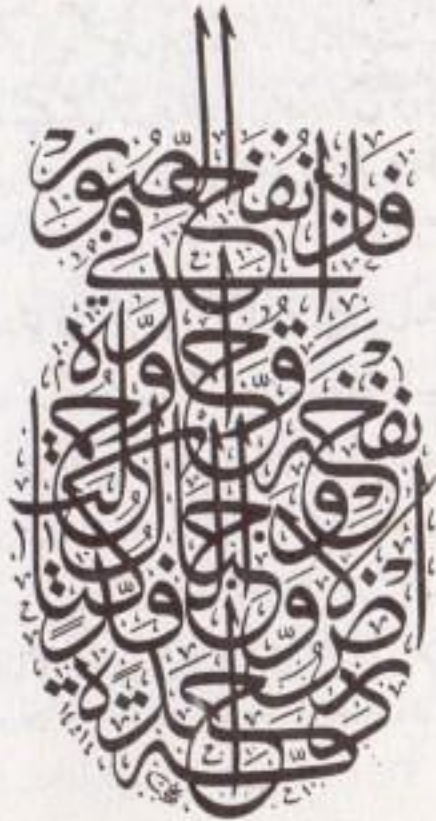 فَإِذَا نُفِخَ فِي الصُّورِ
نَفْخَةٌ وَاحِدَةٌ وَحُمِلَتِ
الْأَرْضُ وَالْجِبَالُ فَدُكَّتَا
دَكَّةً وَاحِدَةً
١٤١٤